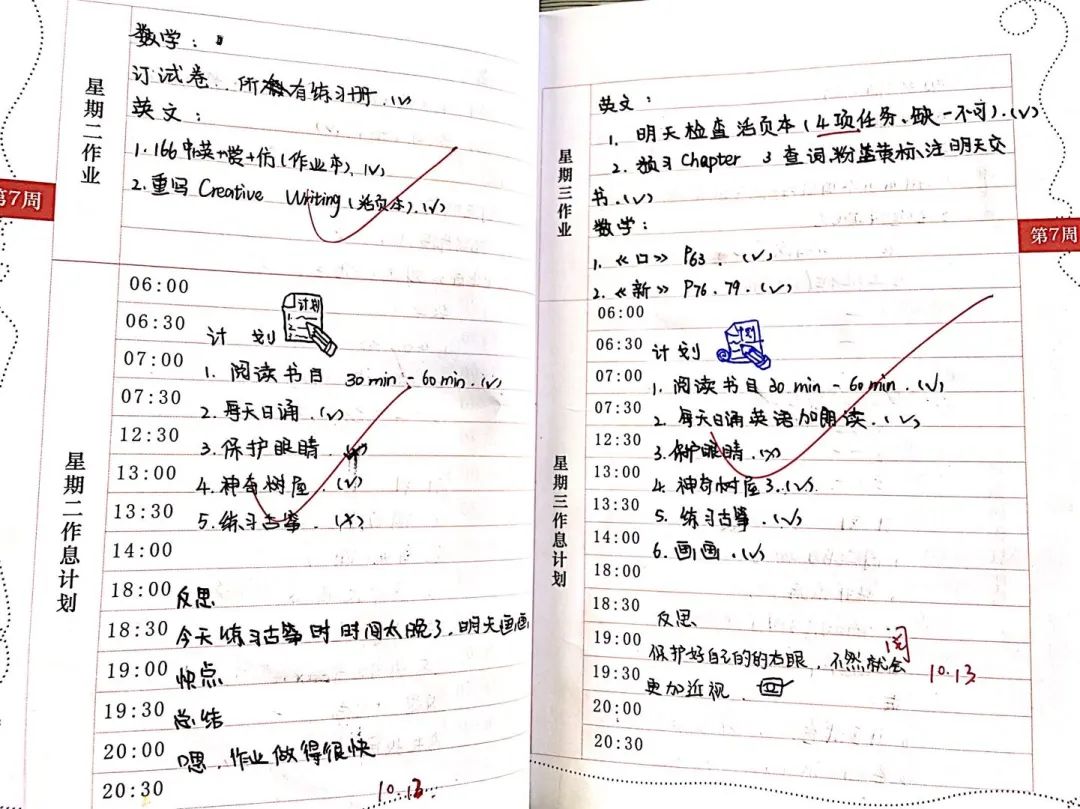 第7周
星期二作业
数学：
订试卷、所有练习册.(√)
英文：
1.166中英+赏+仿(作业本).(√)
2.重写 Creative Writing(活页本).(√)
星期二作息计划
06:00
06:30
计划
计划
07:00
1.阅读书目 30min-60min.(√)
07:30
2.每天日诵.(√)
12:30
3.保护眼睛.
13:00
4.神奇树屋.(√)
13:30
5.练习古筝.(×)
14:00
18:00
反思
18:30
今天练习古筝时时间太晚了.明天画画
19:00
快点
19:30
总结
20:00
嗯,作业做得很快
20:30
10.13
星期三作业
英文：
1.明天检查活页本(4项任务、缺一不可).(√)
2.预习Chapter 3 查词粉蓝黄标注明天交
书.(√)
数学：
1.《口》P63.(√)
2.《新》P76.79.(√)
第7周
星期三作息计划
06:00
06:30
计划
计划
07:00
1.阅读书目30min-60min.(√)
07:30
2.每天日诵英语加朗读.(√)
12:30
3.保护眼睛.(×)
13:00
4.神奇树屋3.(√)
13:30
5.练习古筝.(√)
14:00
6.画画.(√)
18:00
18:30
反思
19:00
保护好自己的的右眼,不然就会
阅
10.13
19:30
更加近视.
20:00
20:30